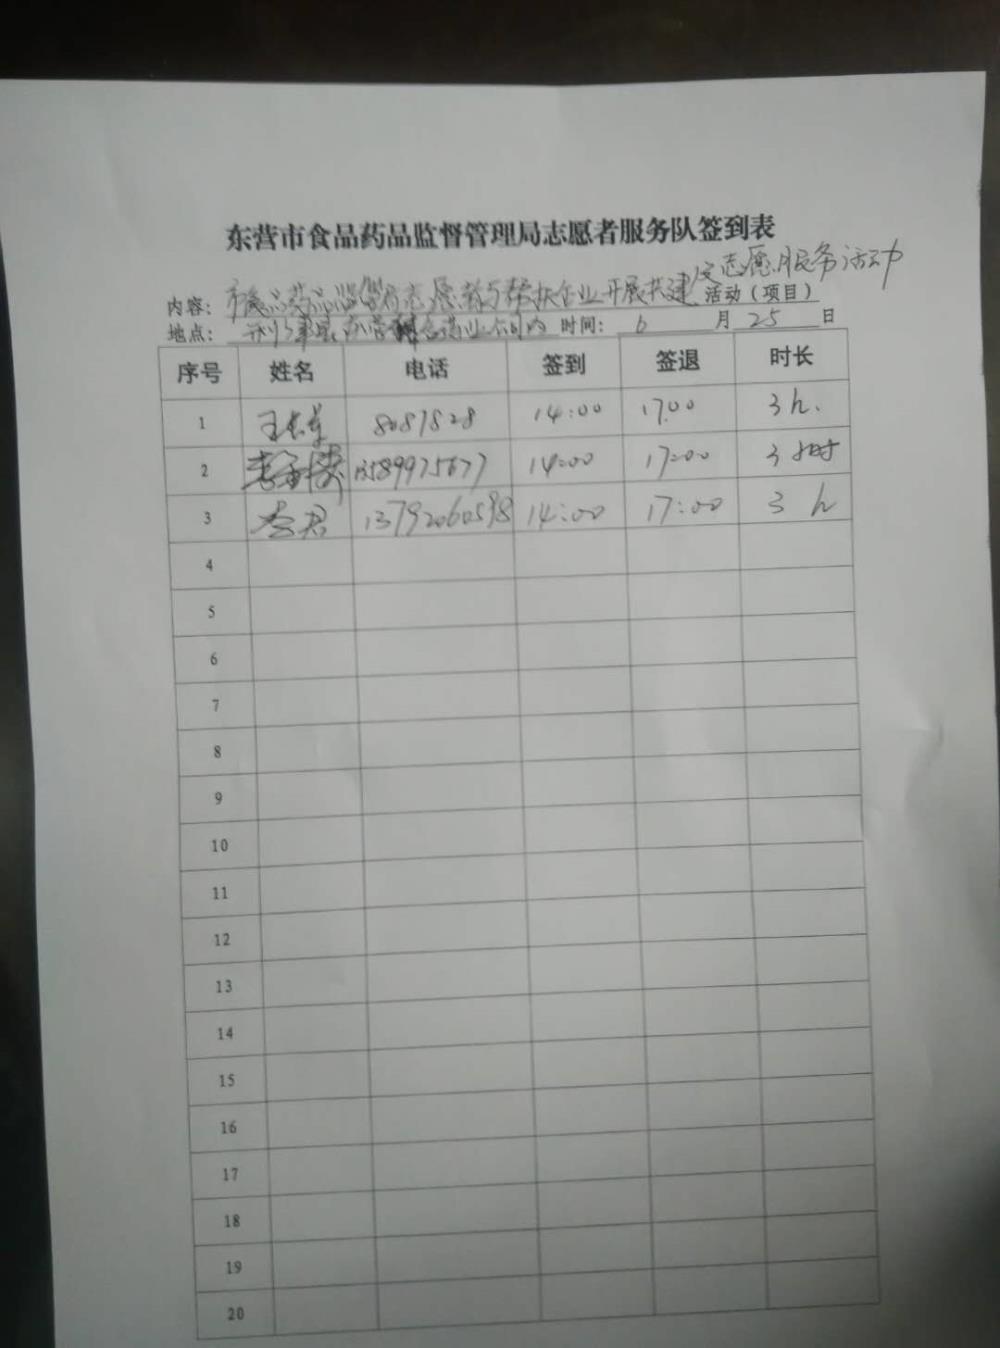 东营市食品药品监督管理局志愿者服务队签到表
内容：市食品药品监管局志愿者与帮扶企业开展共建 志愿服务活动 活动（项目）
地点： 公司内 时间：6月25日
序号 姓名 电话 签到 签退 时长
1 王 8087828 14:00 17:00 3h.
2 李 13589975677 14:00 17:00 3时
3 李君 13792060598 14:00 17:00 3h
4
5
6
7
8
9
10
11
12
13
14
15
16
17
18
19
20